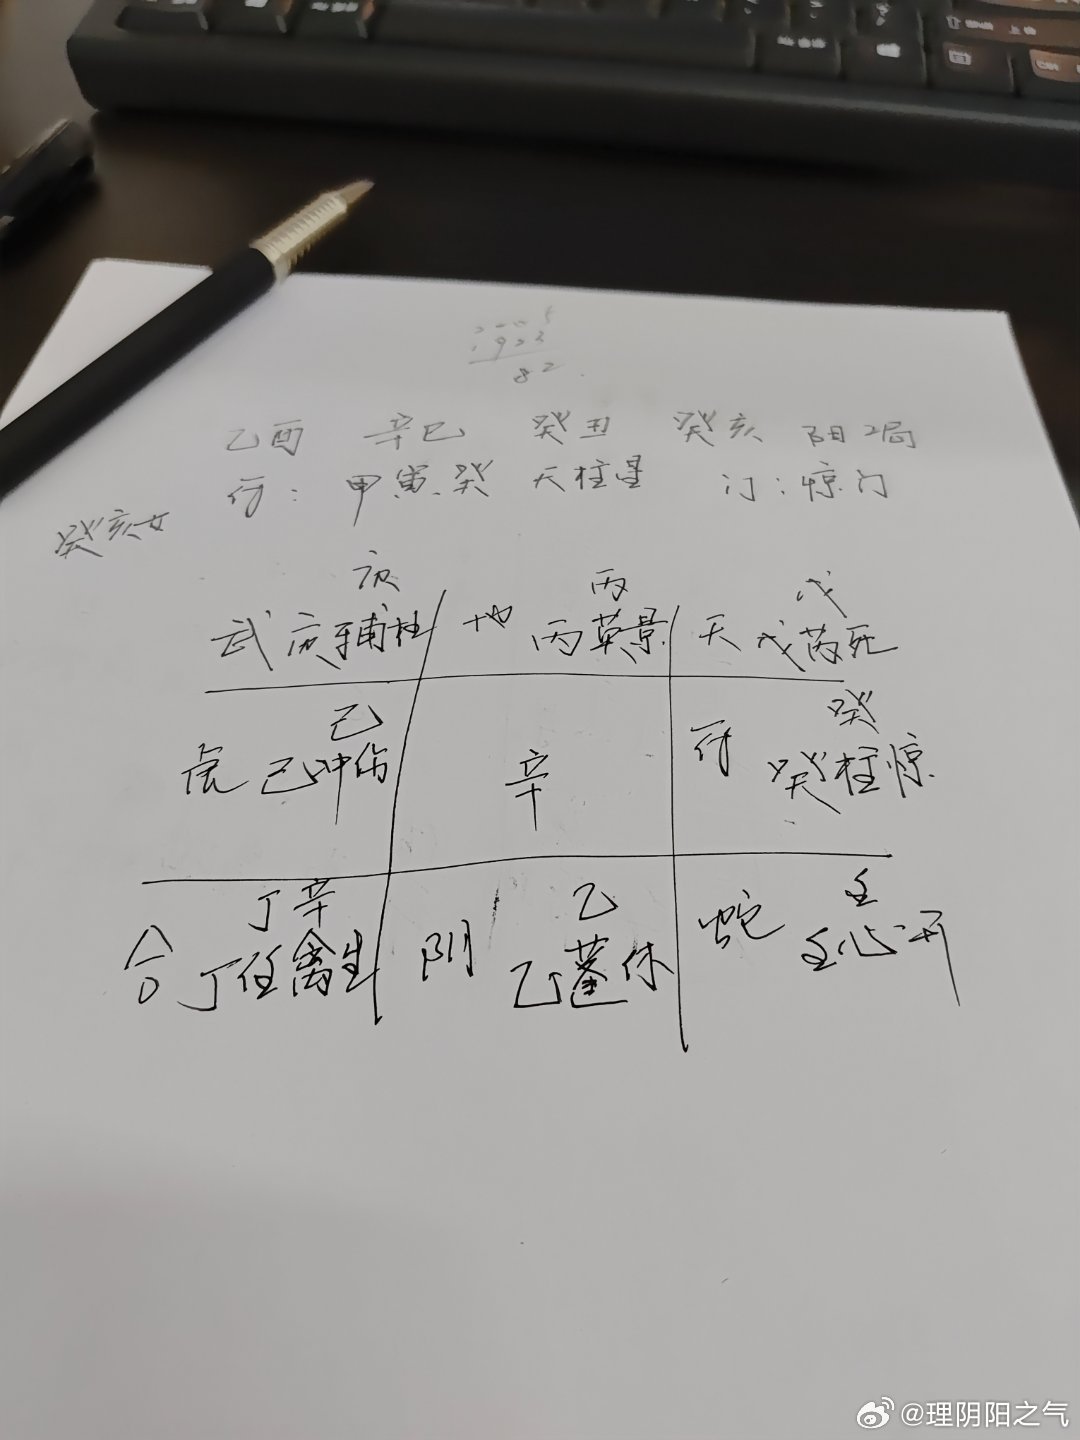 82
乙酉 辛巳 癸丑 癸亥 阴2局
符：甲寅.癸 天柱星 门：惊门
癸亥女
庚 丙 戊
武 庚辅杜 地 丙英景 天 戊芮死
己 癸
虎 己冲伤 辛 符 癸柱惊
丁辛 乙 壬
合 丁任禽生 阴 乙蓬休 蛇 壬心开
@理阴阳之气